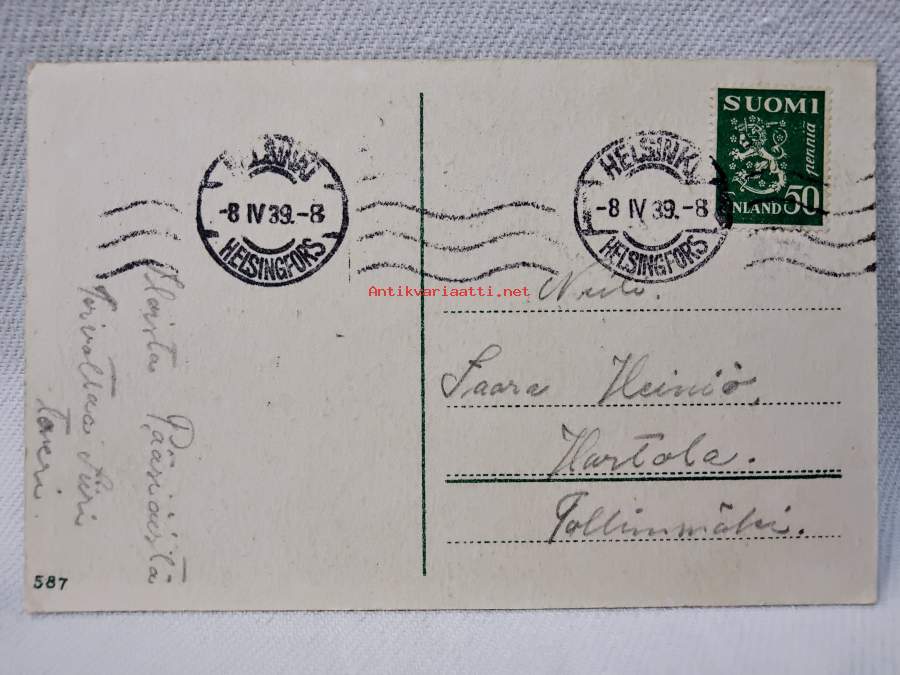 HELSINKI
-8 IV 39.-8
HELSINGFORS
HELSINKI
-8 IV 39.-8
HELSINGFORS
SUOMI
50 pennia
FINLAND
Antikvariaatti.net
Neiti.
Saara Heiniö,
Hartola.
Pollinmäki.
Iloista Pääsiäistä
Toivottaa Siiri
Toveri.
587